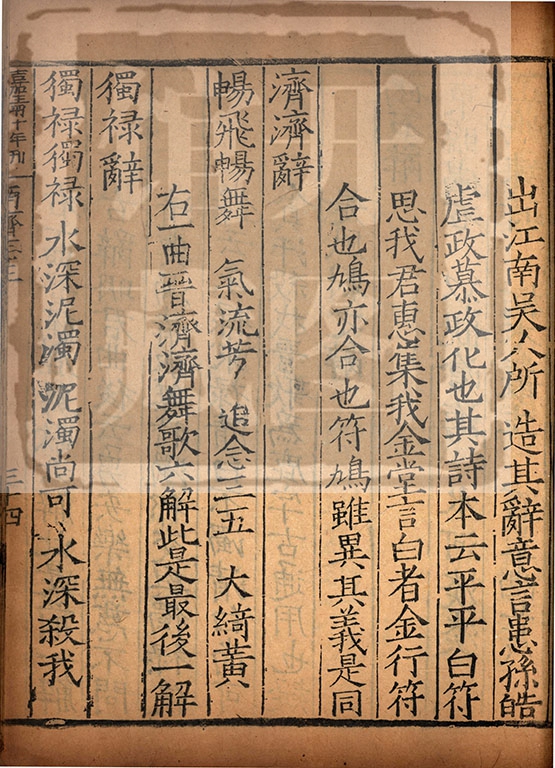 出江南吳人所 造其辭意言患孫皓
虐政慕政化也其詩本云平平白符
思我君惠集我金堂言白者金行符
合也鳩亦合也符鳩雖異其義是同
濟濟辭
暢飛暢舞 氣流芳 追念三五 大綺黃
右一曲晉濟濟舞歌六解此是最後一解
獨祿辭
獨祿獨祿 水深泥濁 泥濁尚可 水深殺我
嘉靖十年刊
三十四